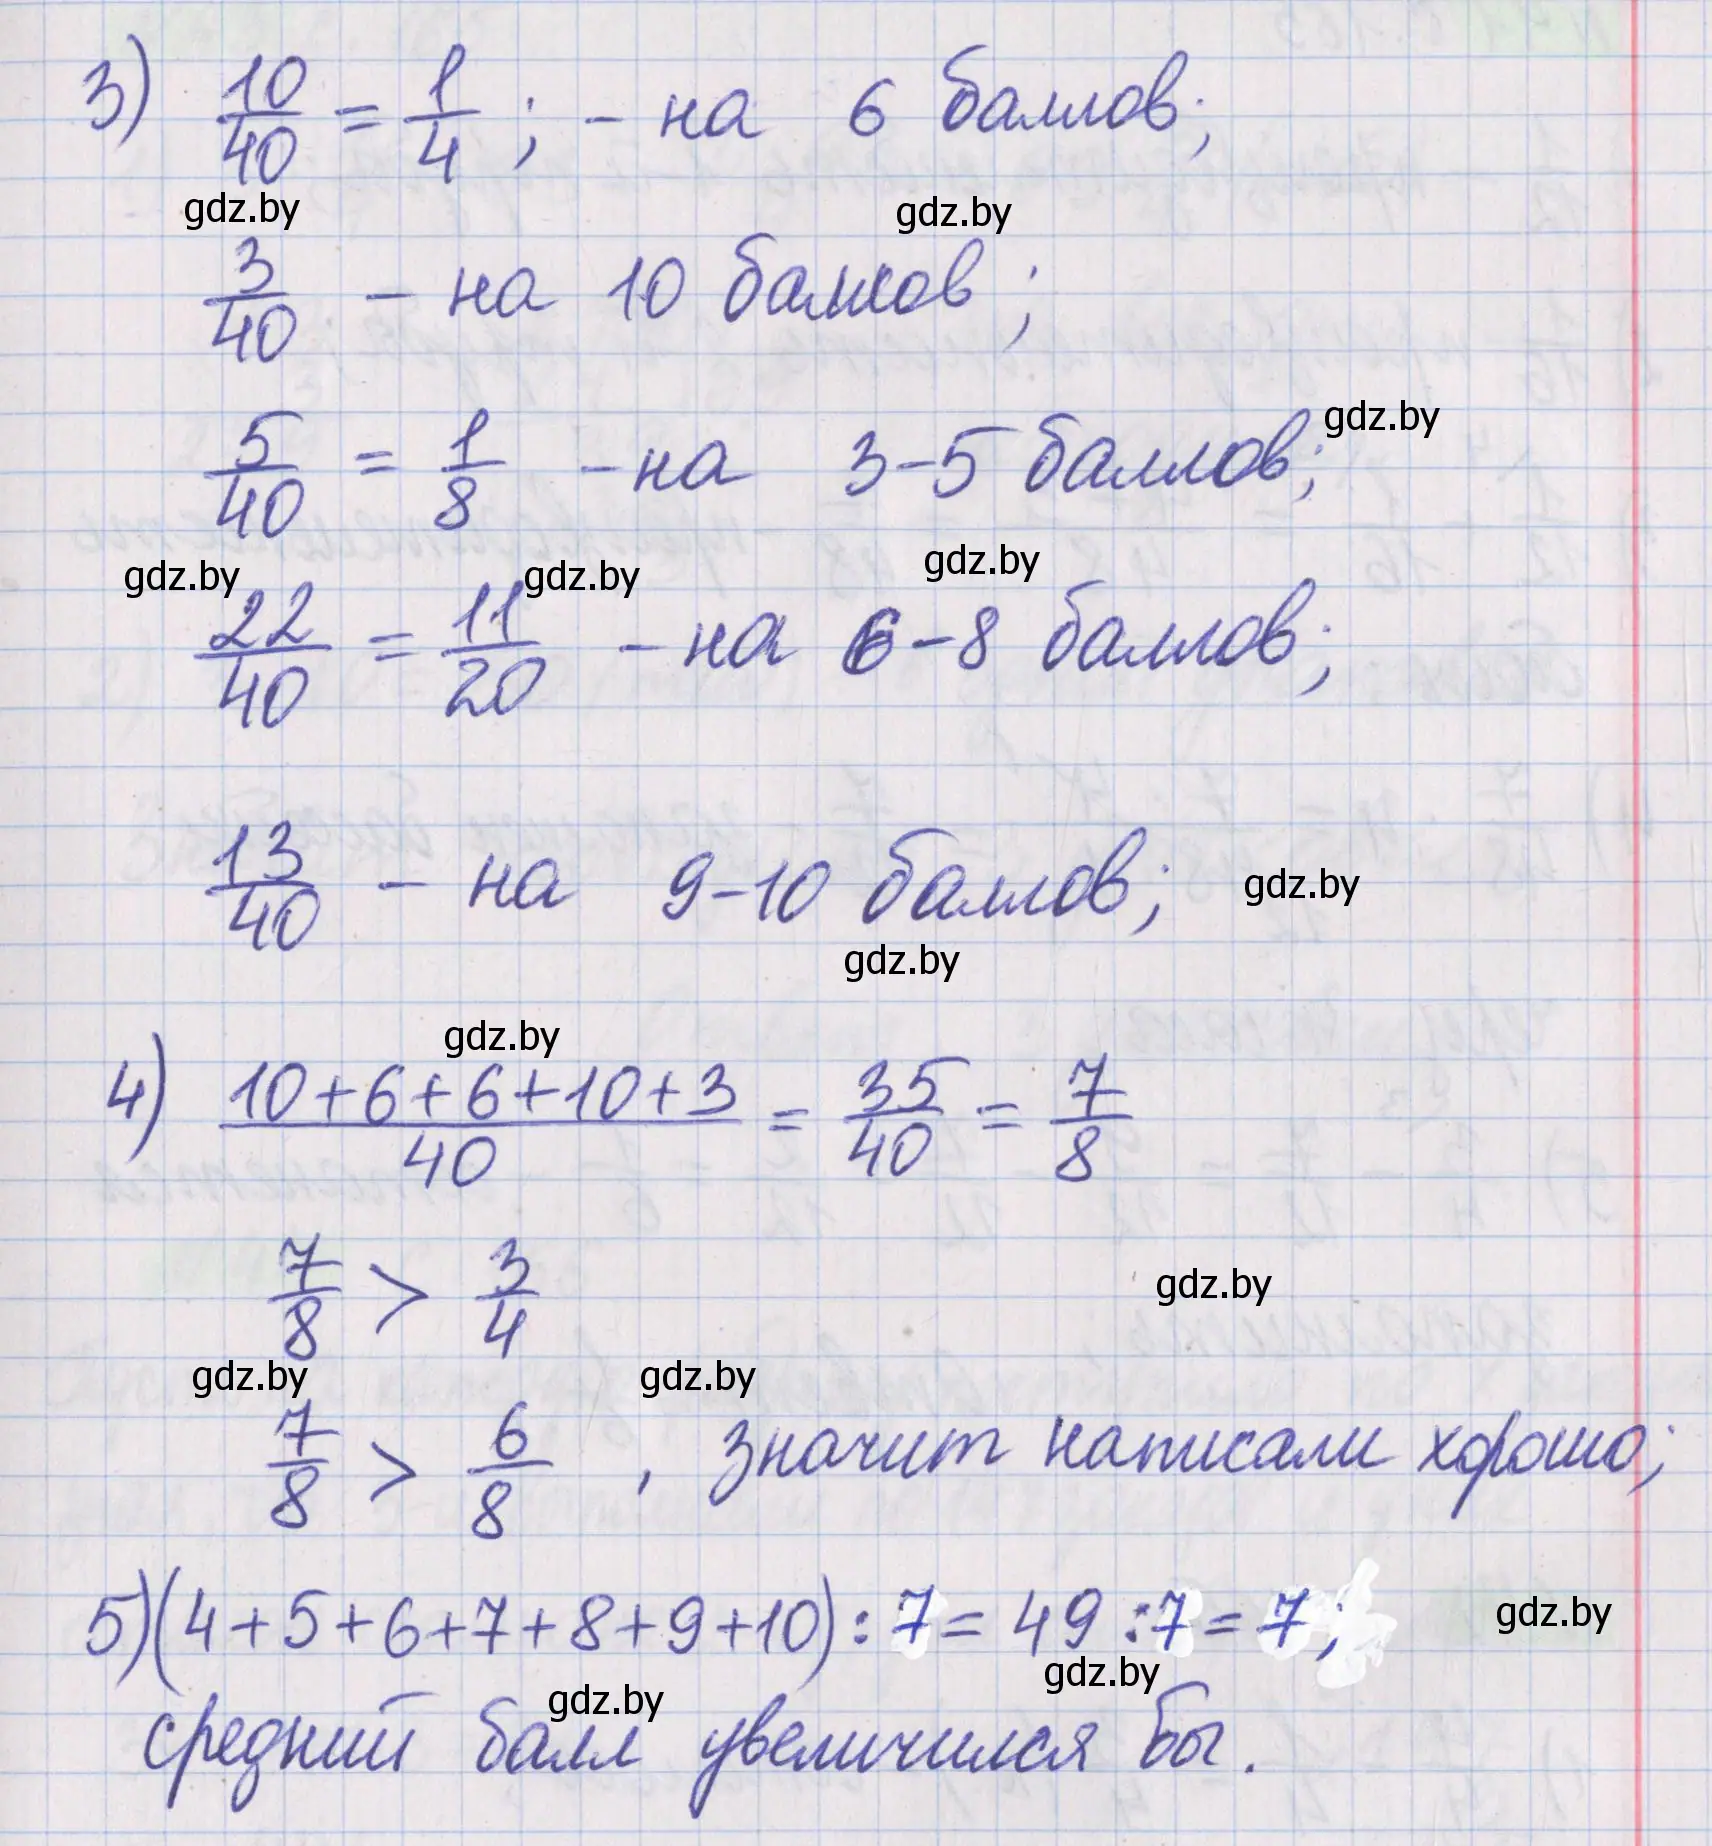 3) 10/40 = 1/4 ; - на 6 баллов;
gdz.by gdz.by
3/40 - на 10 баллов;
gdz.by
5/40 = 1/8 - на 3-5 баллов;
gdz.by gdz.by gdz.by
22/40 = 11/20 - на 6-8 баллов;
13/40 - на 9-10 баллов;
gdz.by
gdz.by
gdz.by
4) (10+6+6+10+3)/40 = 35/40 = 7/8
7/8 > 3/4
gdz.by
gdz.by gdz.by
7/8 > 6/8 , значит написали хорошо;
5)(4+5+6+7+8+9+10):7= 49:7=7;
gdz.by
gdz.by gdz.by
средний балл увеличился бы.